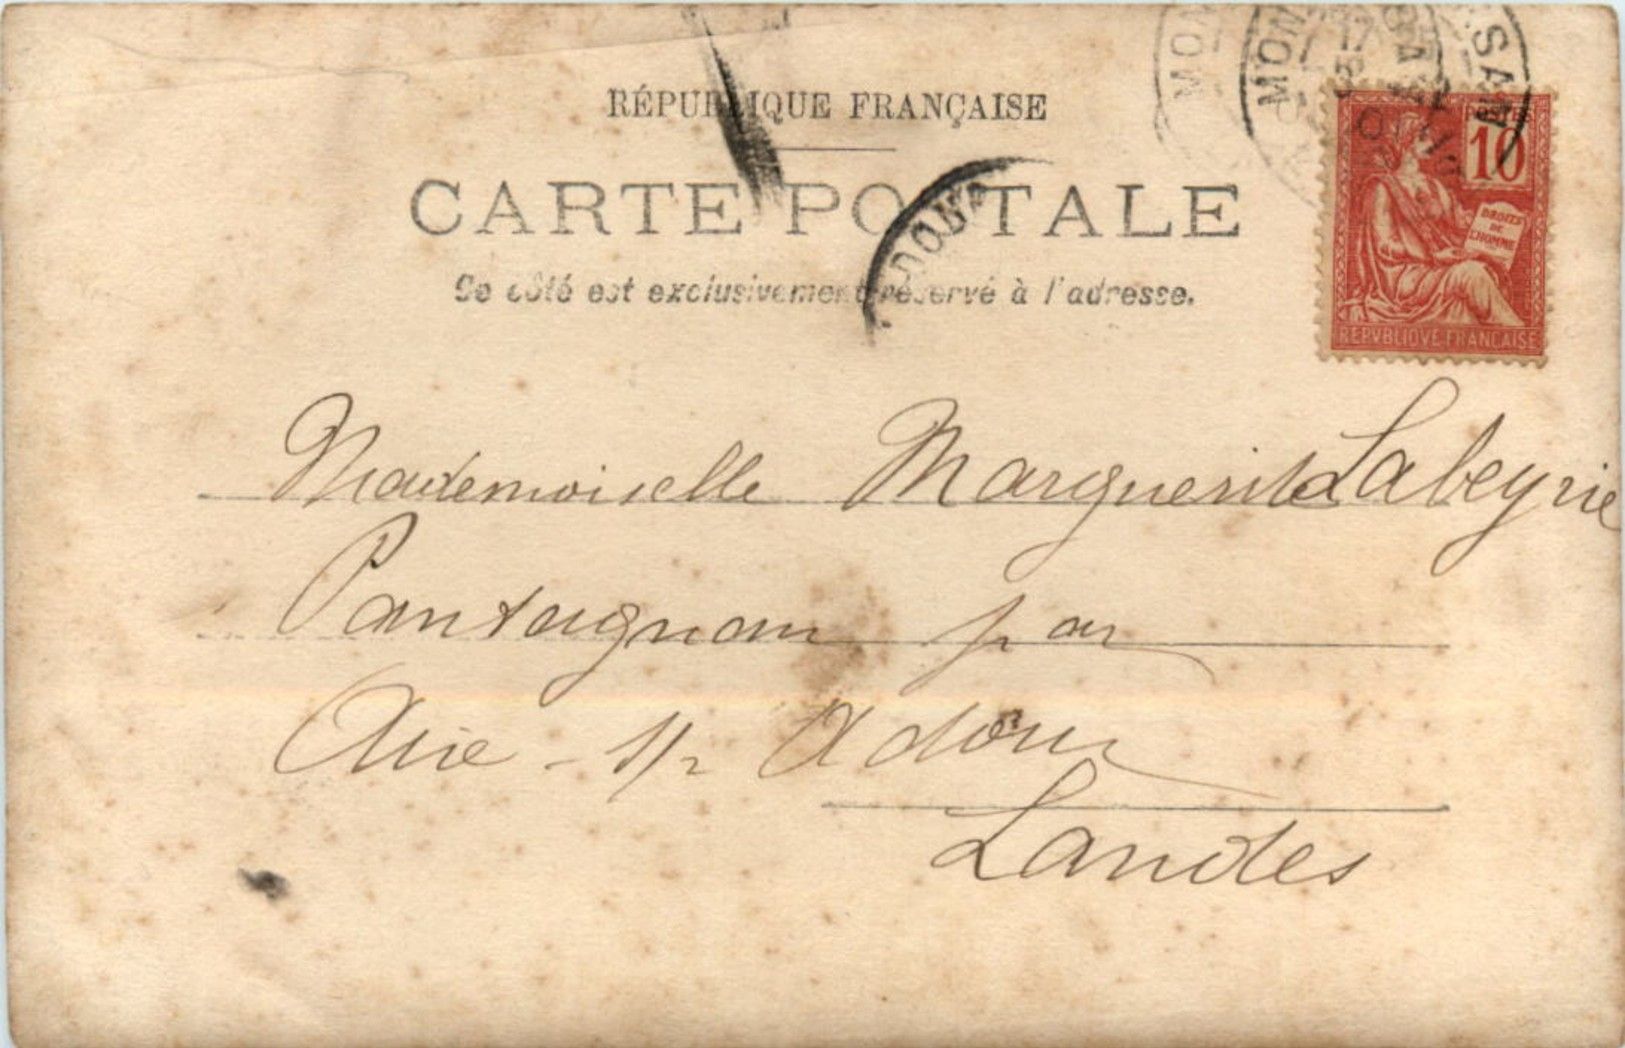 RÉPUBLIQUE FRANÇAISE
CARTE POSTALE
Ce côté est exclusivement réservé à l'adresse.
MON
MON
SAN
POSTES
10
DROITS
DE
L'HOMME
REPVBLIQVE FRANÇAISE
ADOUR
Mademoiselle Marguerite Labeyrie
Pantaignan par
Aire - s/r Adour
Landes